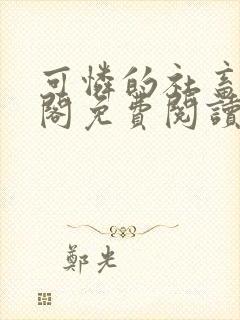 可憐的社畜
閣免費閱讀
鄭光